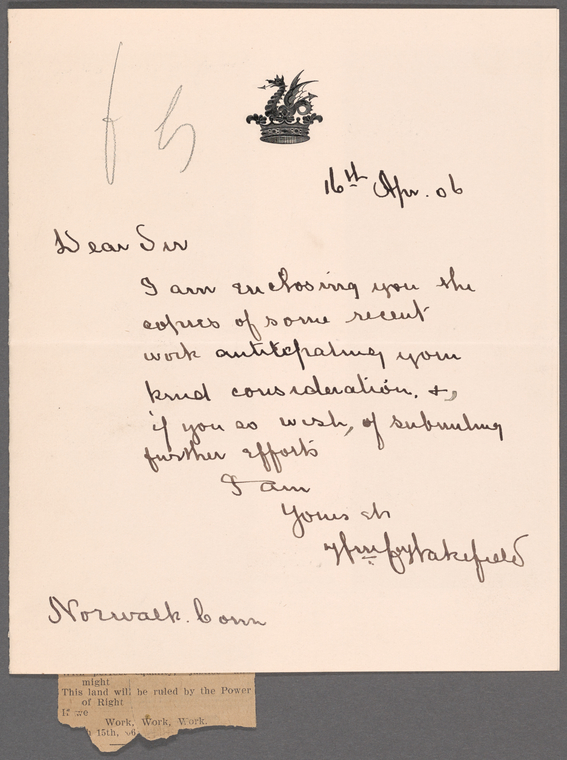 16th Apr. 06
Dear Sir
I am enclosing you the
copies of some recent
work anticipating your
kind consideration. &,
if you so wish, of submitting
further efforts
I am
Yours etc
Wm Wakefield
Norwalk. Conn
might
This land will be ruled by the Power
of Right
If we
Work, Work, Work.
15th, 06